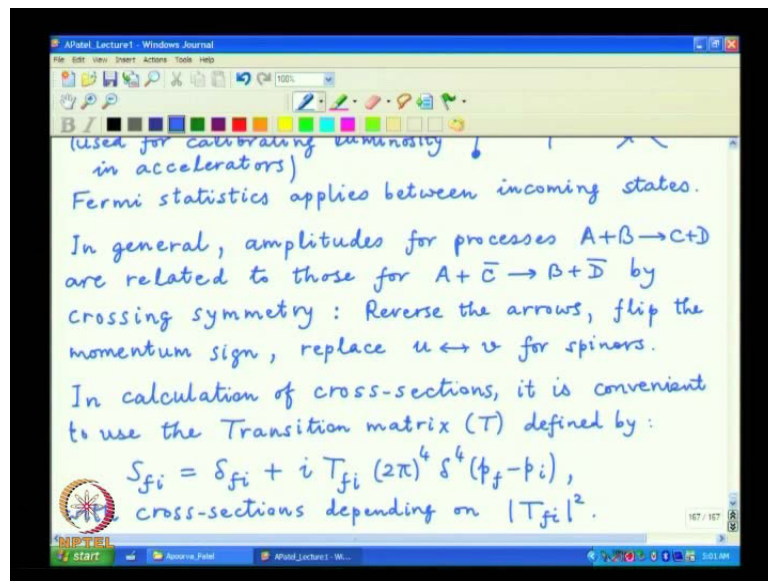 APatel_Lecture1 - Windows Journal
File Edit View Insert Actions Tools Help
100%
B I
(used for calibrating luminosity
in accelerators)
Fermi statistics applies between incoming states.
In general, amplitudes for processes A+B → C+D
are related to those for A + C̅ → B + D̅ by
crossing symmetry : Reverse the arrows, flip the
momentum sign, replace u ↔ v for spinors.
In calculation of cross-sections, it is convenient
to use the Transition matrix (T) defined by :
S_{fi} = δ_{fi} + i T_{fi} (2π)^4 δ^4 (p_f - p_i) ,
cross-sections depending on |T_{fi}|^2 .
167 / 167
NPTEL
start Apoorva_Patel APatel_Lecture1 - Wi... 5:01 AM